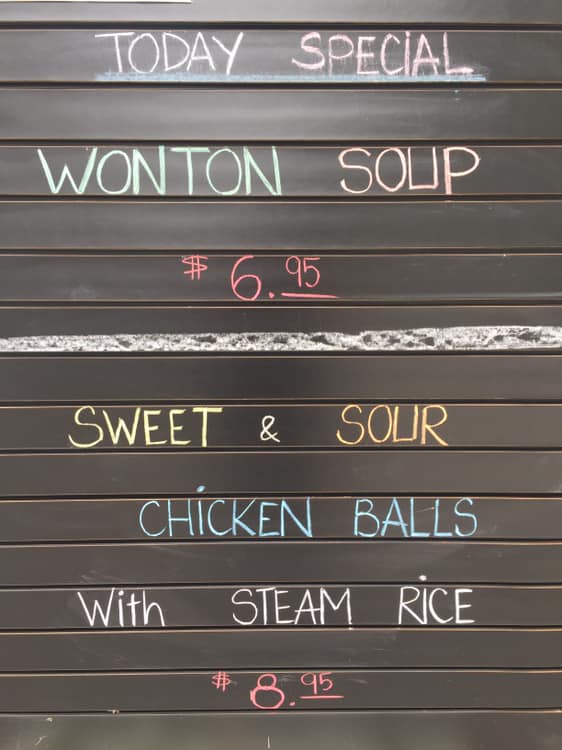 TODAY SPECiAL
WONTON SOUP
$ 6.95
SWEET & SOUR
CHiCKEN BALLS
With STEAM RiCE
$ 8.95